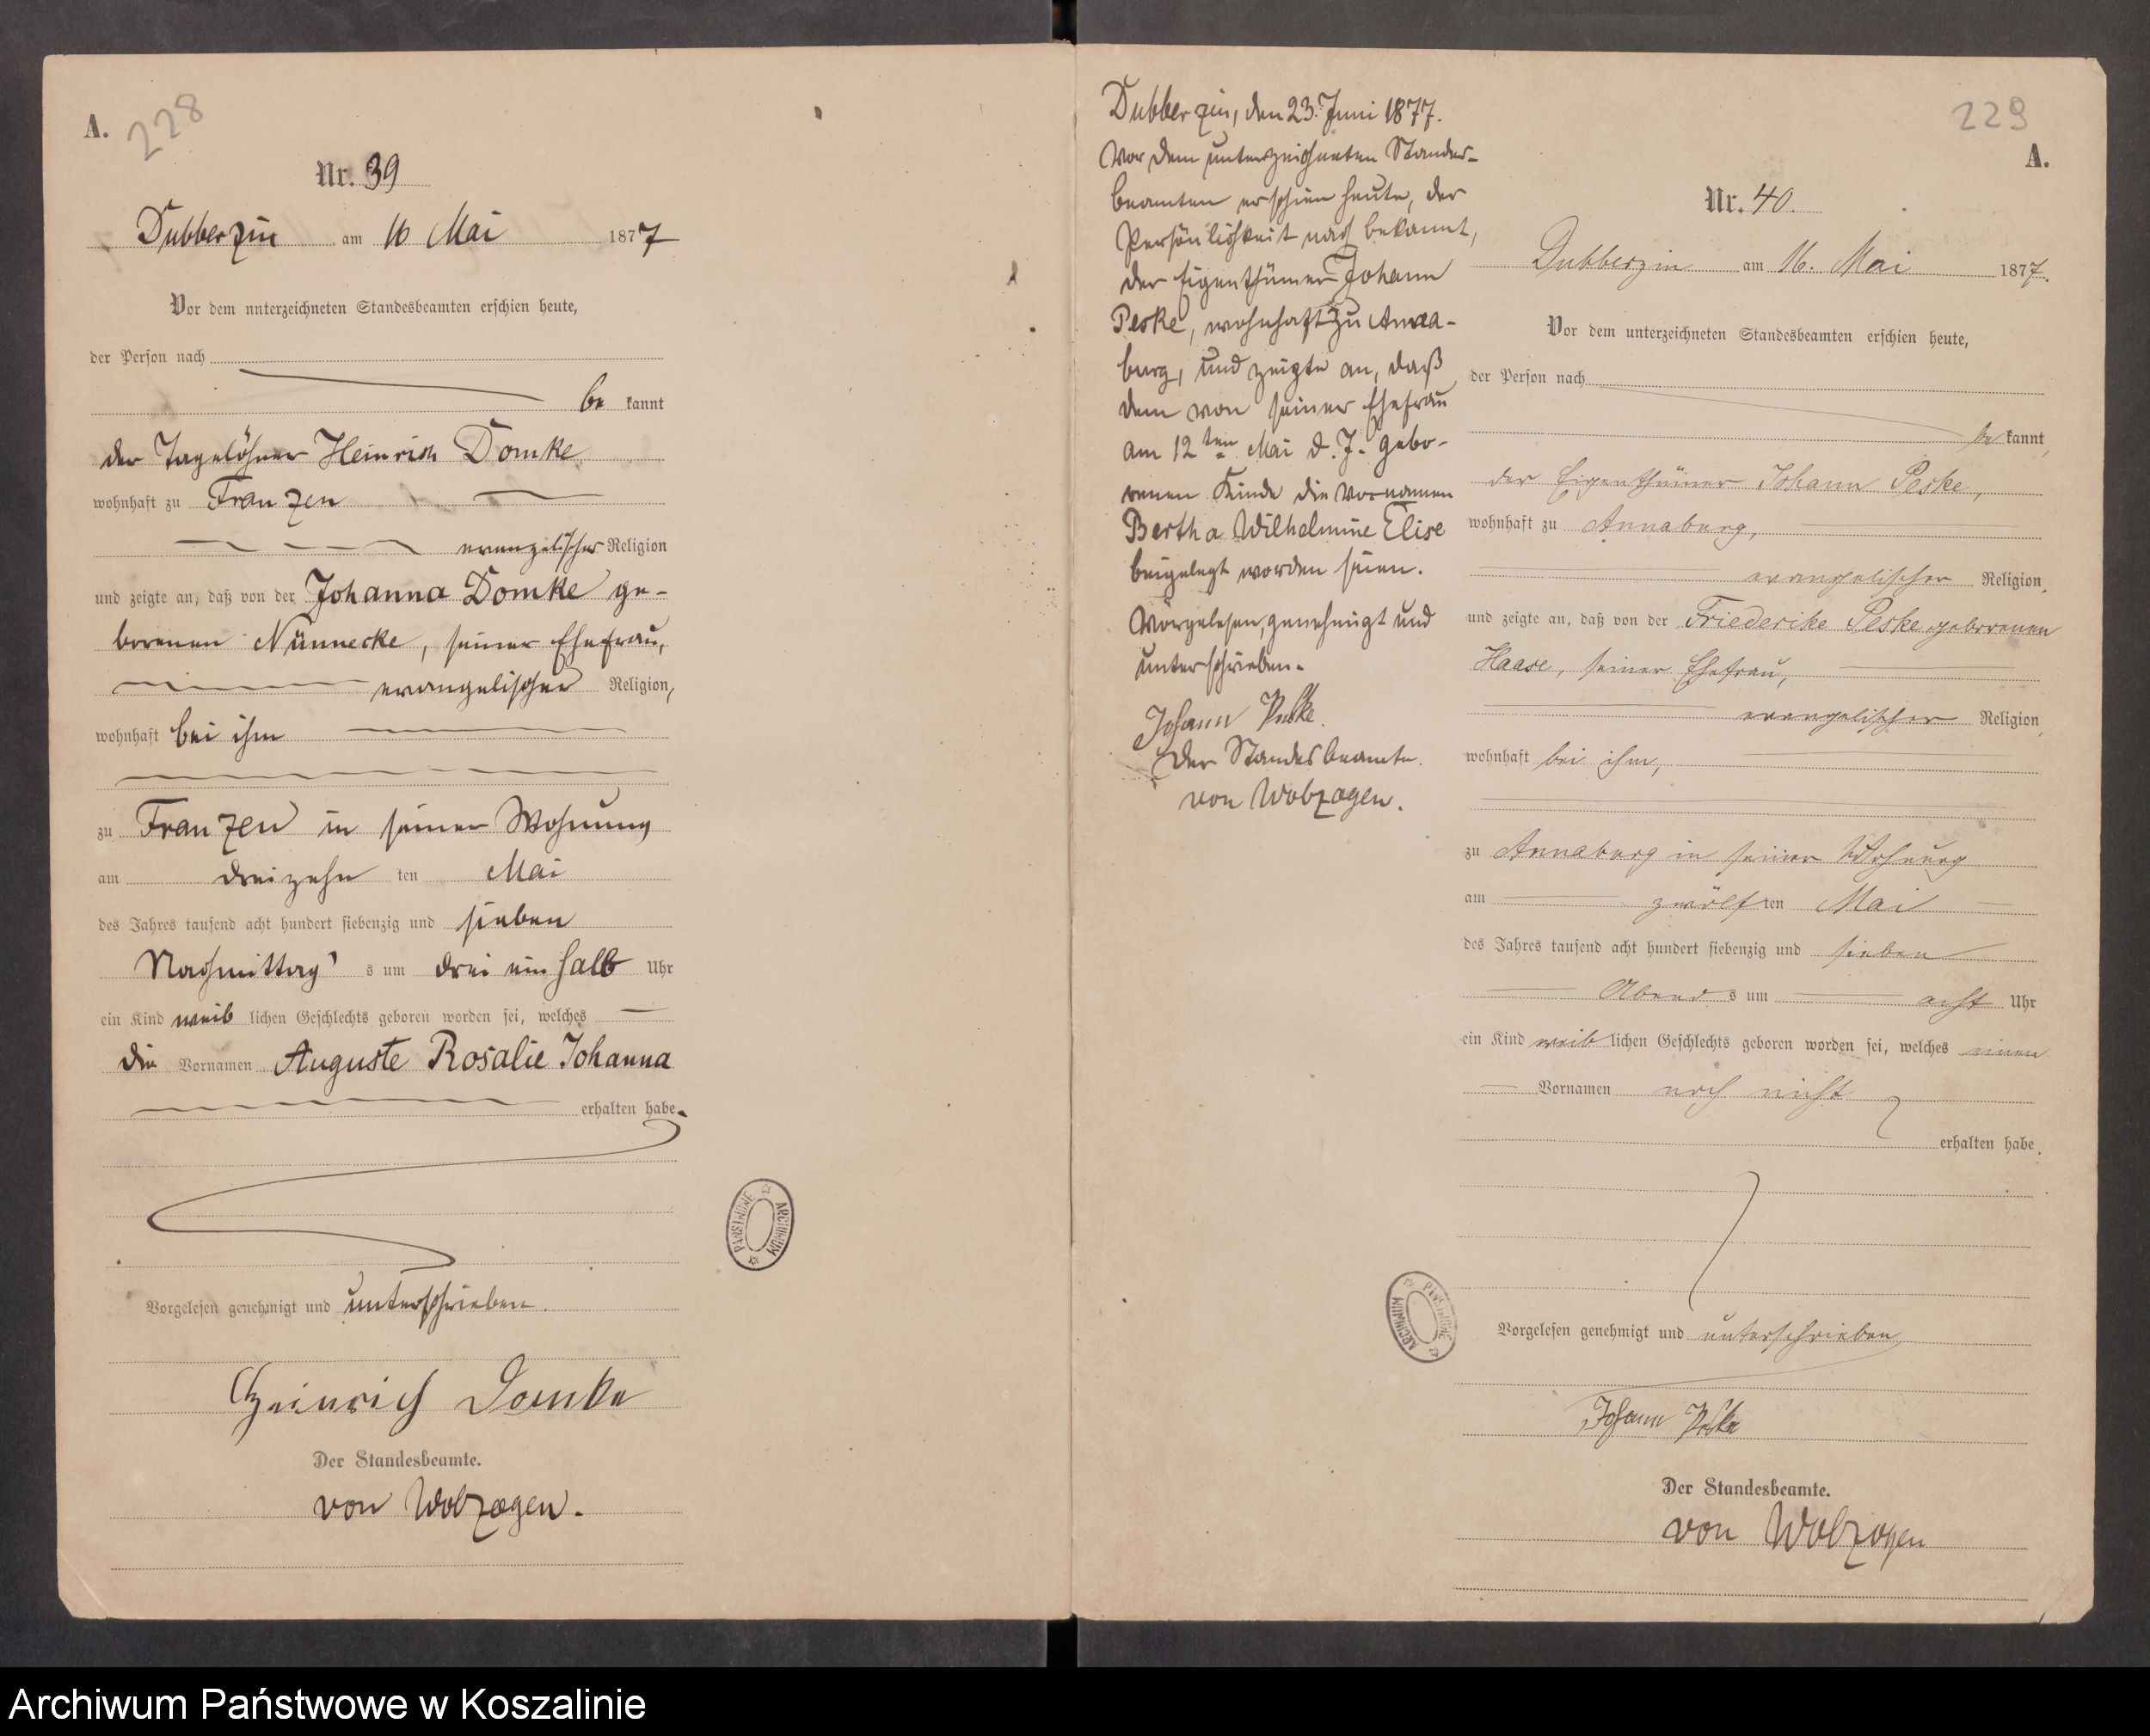 A.
228
Nr. 39
Dubberzin am 16 Mai 1877
Vor dem unterzeichneten Standesbeamten erschien heute,
der Person nach
be kannt
der Tagelöhner Heinrich Domke
wohnhaft zu Franzen
evangelischer Religion
und zeigte an, daß von der Johanna Domke ge-
borenen Nünnecke, seiner Ehefrau,
evangelischer Religion,
wohnhaft bei ihm
zu Franzen in seiner Wohnung
am dreizehn ten Mai
des Jahres tausend acht hundert siebenzig und sieben
Nachmittag's um drei ein halb Uhr
ein Kind weib lichen Geschlechts geboren worden sei, welches
die Vornamen Auguste Rosalie Johanna
erhalten habe.
Vorgelesen genehmigt und unterschrieben.
Heinrich Domke
Der Standesbeamte.
von Wolzogen.
ARCHIWUM PAŃSTWOWE
Dubberzin, den 23. Juni 1877.
Vor dem unterzeichneten Standes-
beamten erschien heute, der
Persönlichkeit nach bekannt,
der Eigenthümer Johann
Peske, wohnhaft zu Anna-
burg, und zeigte an, daß
dem von seiner Ehefrau
am 12ten Mai d. J. gebo-
renen Kinde die Vornamen
Bertha Wilhelmine Elise
beigelegt worden seien.
Vorgelesen, genehmigt und
unterschrieben.
Johann Peske.
Der Standesbeamte.
von Wolzogen.
ARCHIWUM PAŃSTWOWE
229
A.
Nr. 40.
Dubberzin am 16. Mai 1877.
Vor dem unterzeichneten Standesbeamten erschien heute,
der Person nach
be kannt,
der Eigenthümer Johann Peske,
wohnhaft zu Annaburg,
evangelischer Religion,
und zeigte an, daß von der Friederike Peske geborenen
Haase, seiner Ehefrau,
evangelischer Religion,
wohnhaft bei ihm,
zu Annaburg in seiner Wohnung
am zwölf ten Mai
des Jahres tausend acht hundert siebenzig und sieben
Abend s um acht Uhr
ein Kind weib lichen Geschlechts geboren worden sei, welches einen
Vornamen noch nicht
erhalten habe.
Vorgelesen genehmigt und unterschrieben
Johann Peske
Der Standesbeamte.
von Wolzogen
Archiwum Państwowe w Koszalinie